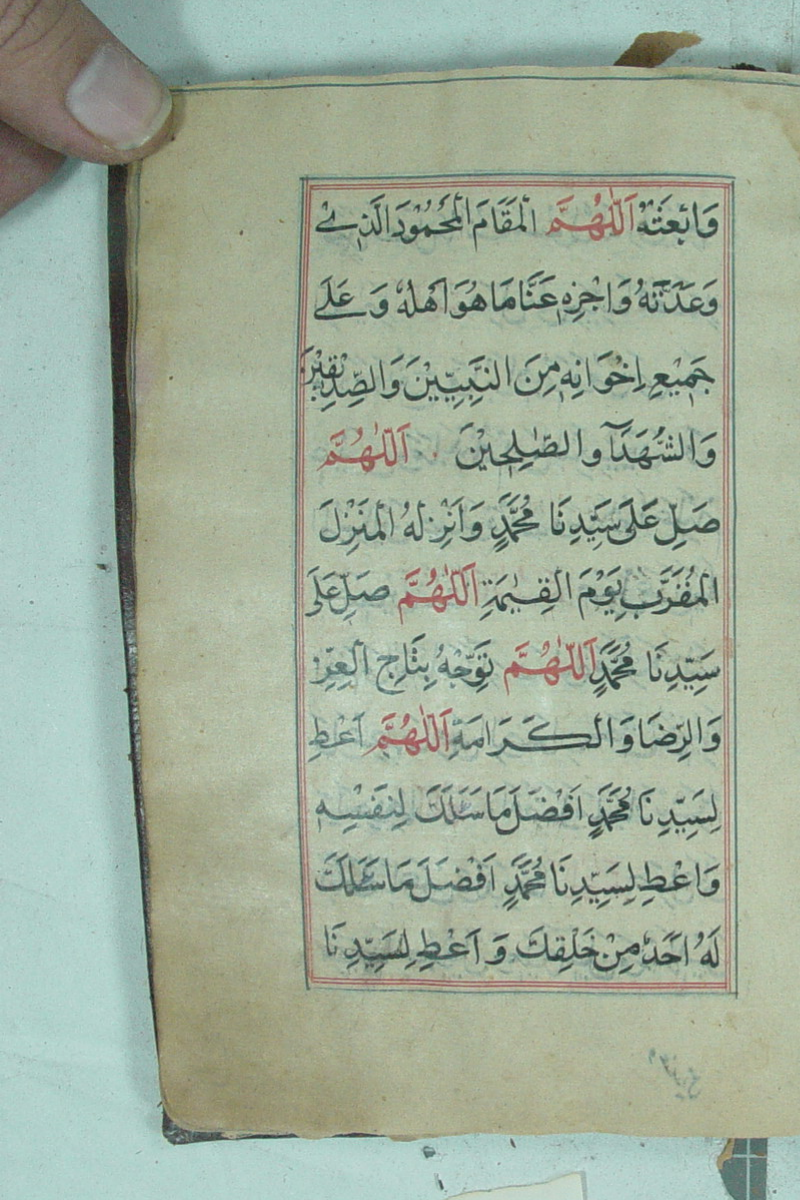 وَابْعَثْهُ اَللّٰهُمَّ الْمَقَامَ الْمَحْمُوْدَ الَّذِيْ
وَعَدْتَهُ وَاجْزِهِ عَنَّا مَا هُوَ اَهْلُهُ وَ عَلَى
جَمِيْعِ اِخْوَانِهِ مِنَ النَّبِيِّيْنَ وَالصِّدِّيْقِيْنَ
وَالشُّهَدَآ وَالصّٰلِحِيْنَ اَللّٰهُمَّ
صَلِّ عَلَى سَيِّدِنَا مُحَمَّدٍ وَاَنْزِلْهُ الْمَنْزِلَ
الْمُقَرَّبَ يَوْمَ الْقِيٰمَةِ اَللّٰهُمَّ صَلِّ عَلَى
سَيِّدِنَا مُحَمَّدٍ اَللّٰهُمَّ تَوِّجْهُ بِتَاجِ الْعِزِّ
وَالرِّضَا وَالْكَرَامَةِ اَللّٰهُمَّ اَعْطِ
لِسَيِّدِنَا مُحَمَّدٍ اَفْضَلَ مَا سَئَلَكَ لِنَفْسِهِ
وَاَعْطِ لِسَيِّدِنَا مُحَمَّدٍ اَفْضَلَ مَا سَئَلَكَ
لَهُ اَحَدٌ مِنْ خَلْقِكَ وَ اَعْطِ لِسَيِّدِنَا